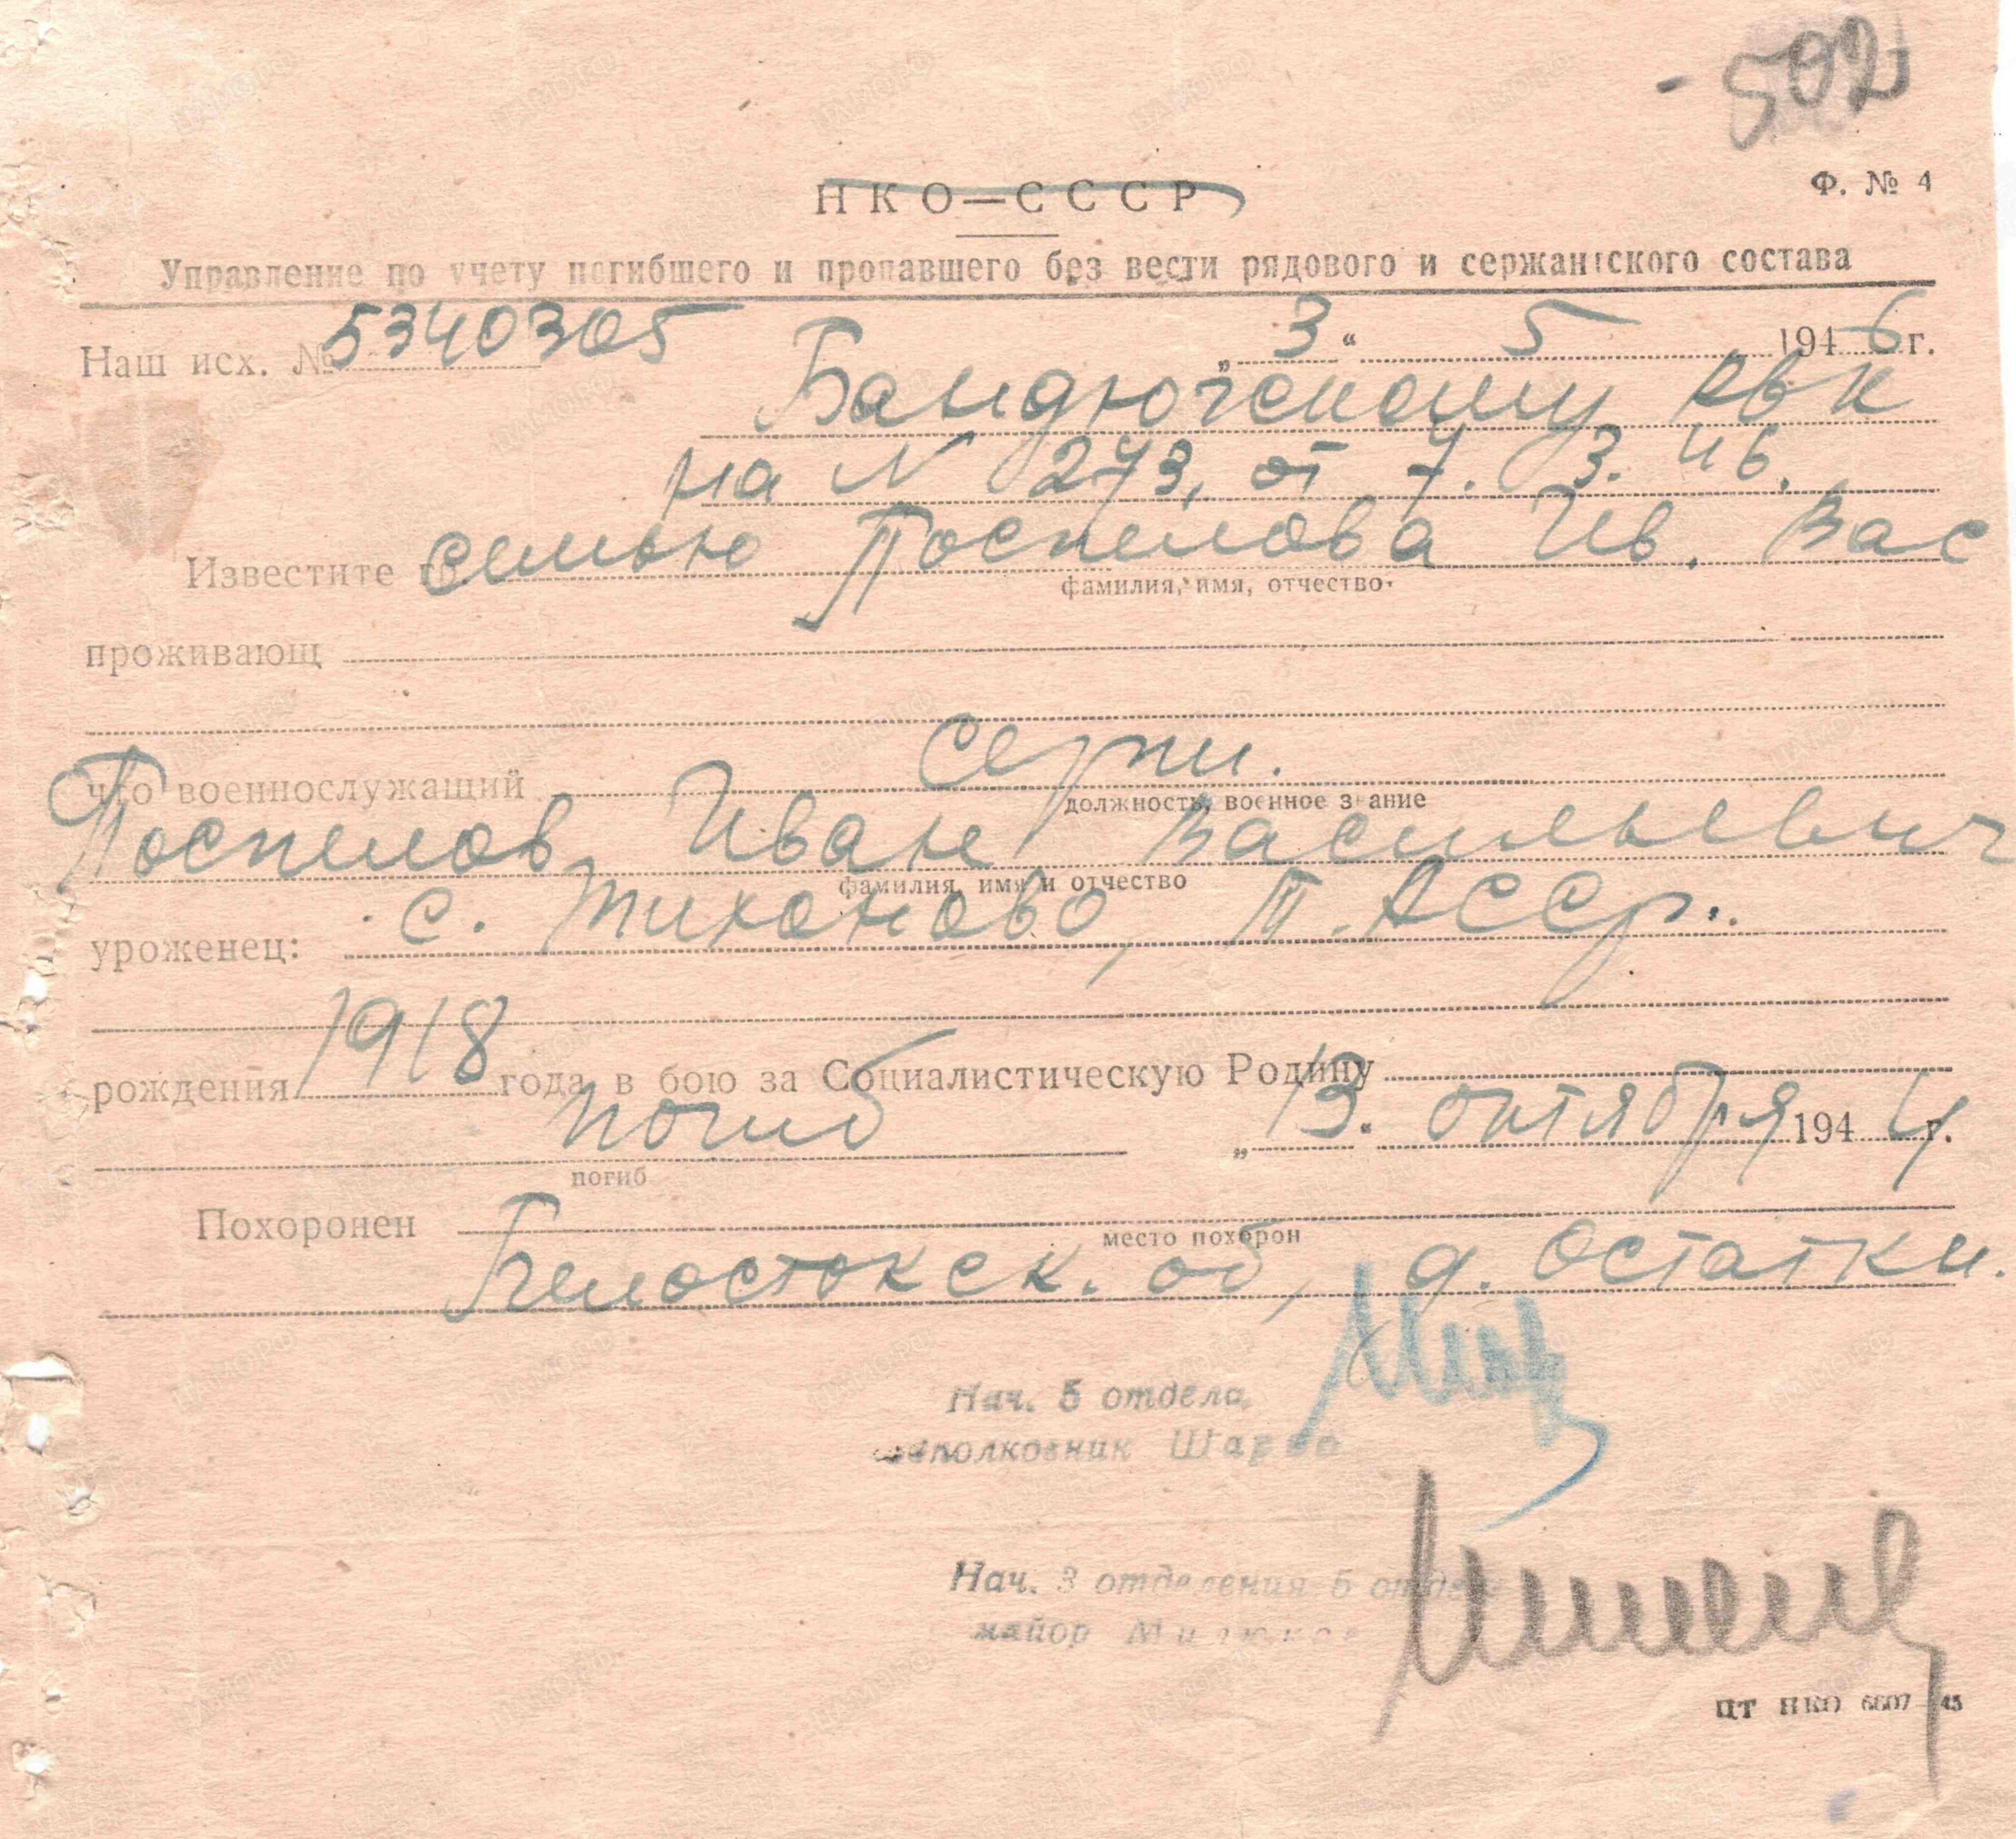 - 502
Ф. № 4
НКО—СССР
Управление по учету погибшего и пропавшего без вести рядового и сержантского состава
Наш исх. № 5340305 „ 3 “ 5 1946 г.
Бандюгскому РВК
на N 273, от 7. 3. 46.
Известите семью Поспелова Ив. Вас
фамилия, имя, отчество
проживающ
что военнослужащий
должность, военное звание
Поспелов Иван Васильевич
фамилия, имя и отчество
уроженец: с. Тихоново, Т. АССР.
рождения 1918 года в бою за Социалистическую Родину
погиб „ 13. октября 1944 г.
погиб
Похоронен
место похорон
Белостокск. об, д. Остатки.
Нач. 5 отдела
Нач. 3 отделения 5 отдела
майор
ЦТ НКО 6607 45